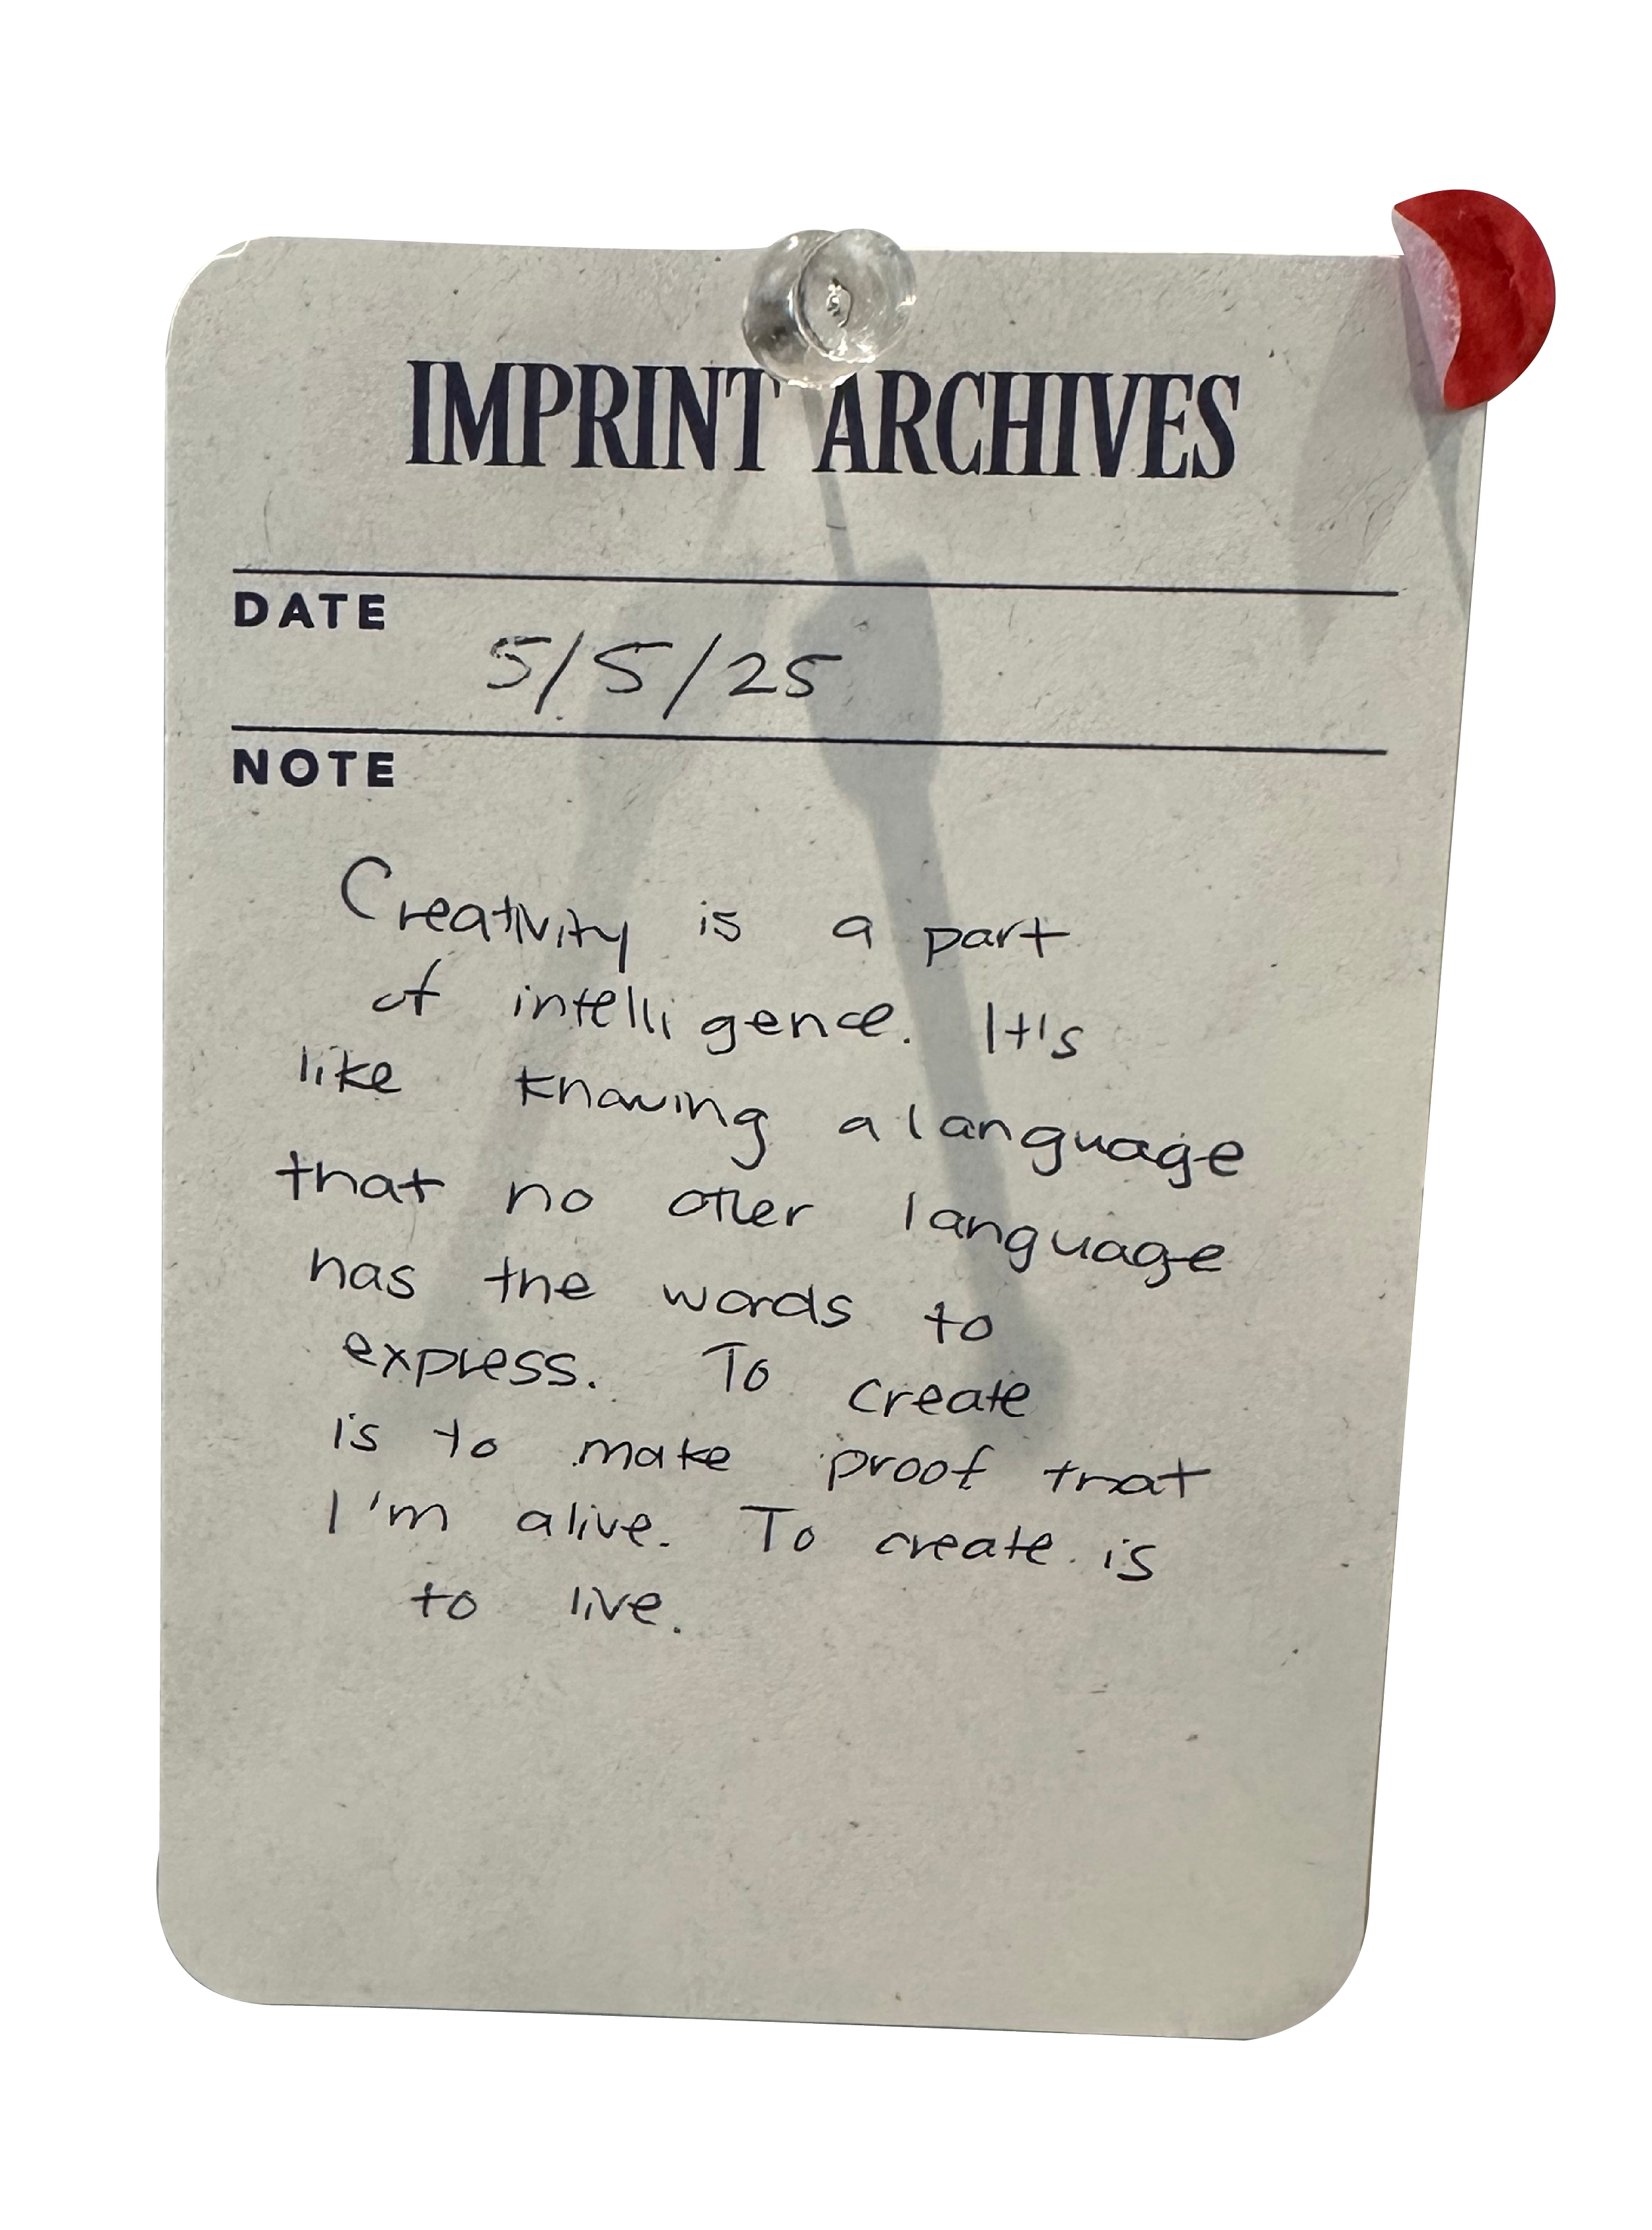 IMPRINT ARCHIVES
DATE
5/5/25
NOTE
Creativity is a part
of intelligence. It's
like knowing a language
that no other language
has the words to
express. To create
is to make proof that
I'm alive. To create is
to live.